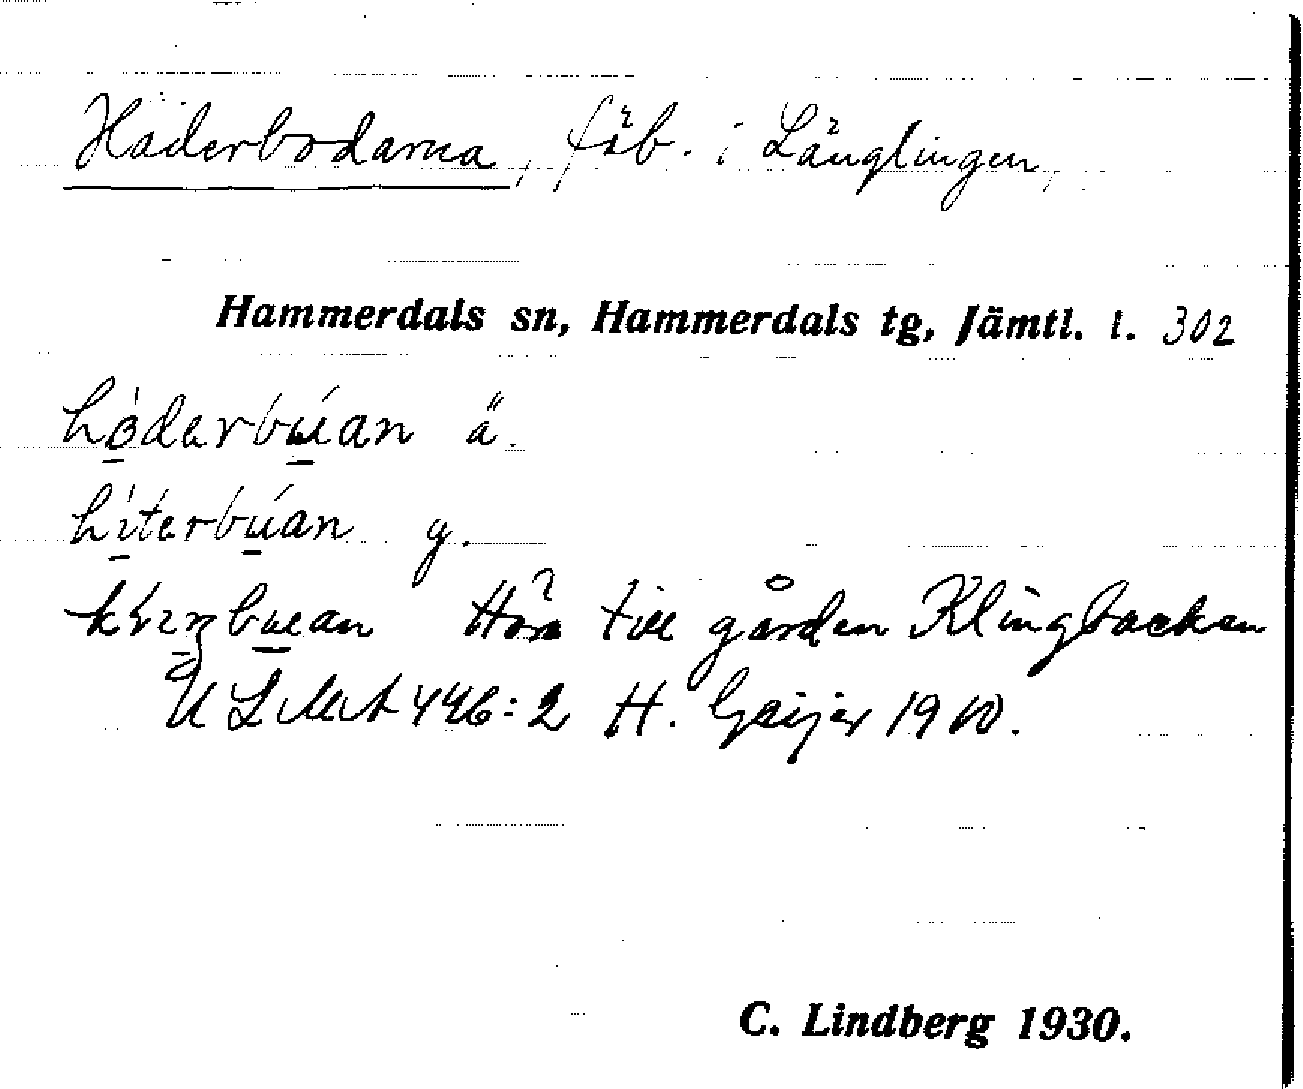 Häderbodarna, fäb. i Länglingen,
Hammerdals sn, Hammerdals tg, Jämtl. l. 302
ä.
y.
Höra till gården Klingbacken
ULMA 446:2 H. Geijer 1910.
C. Lindberg 1930.